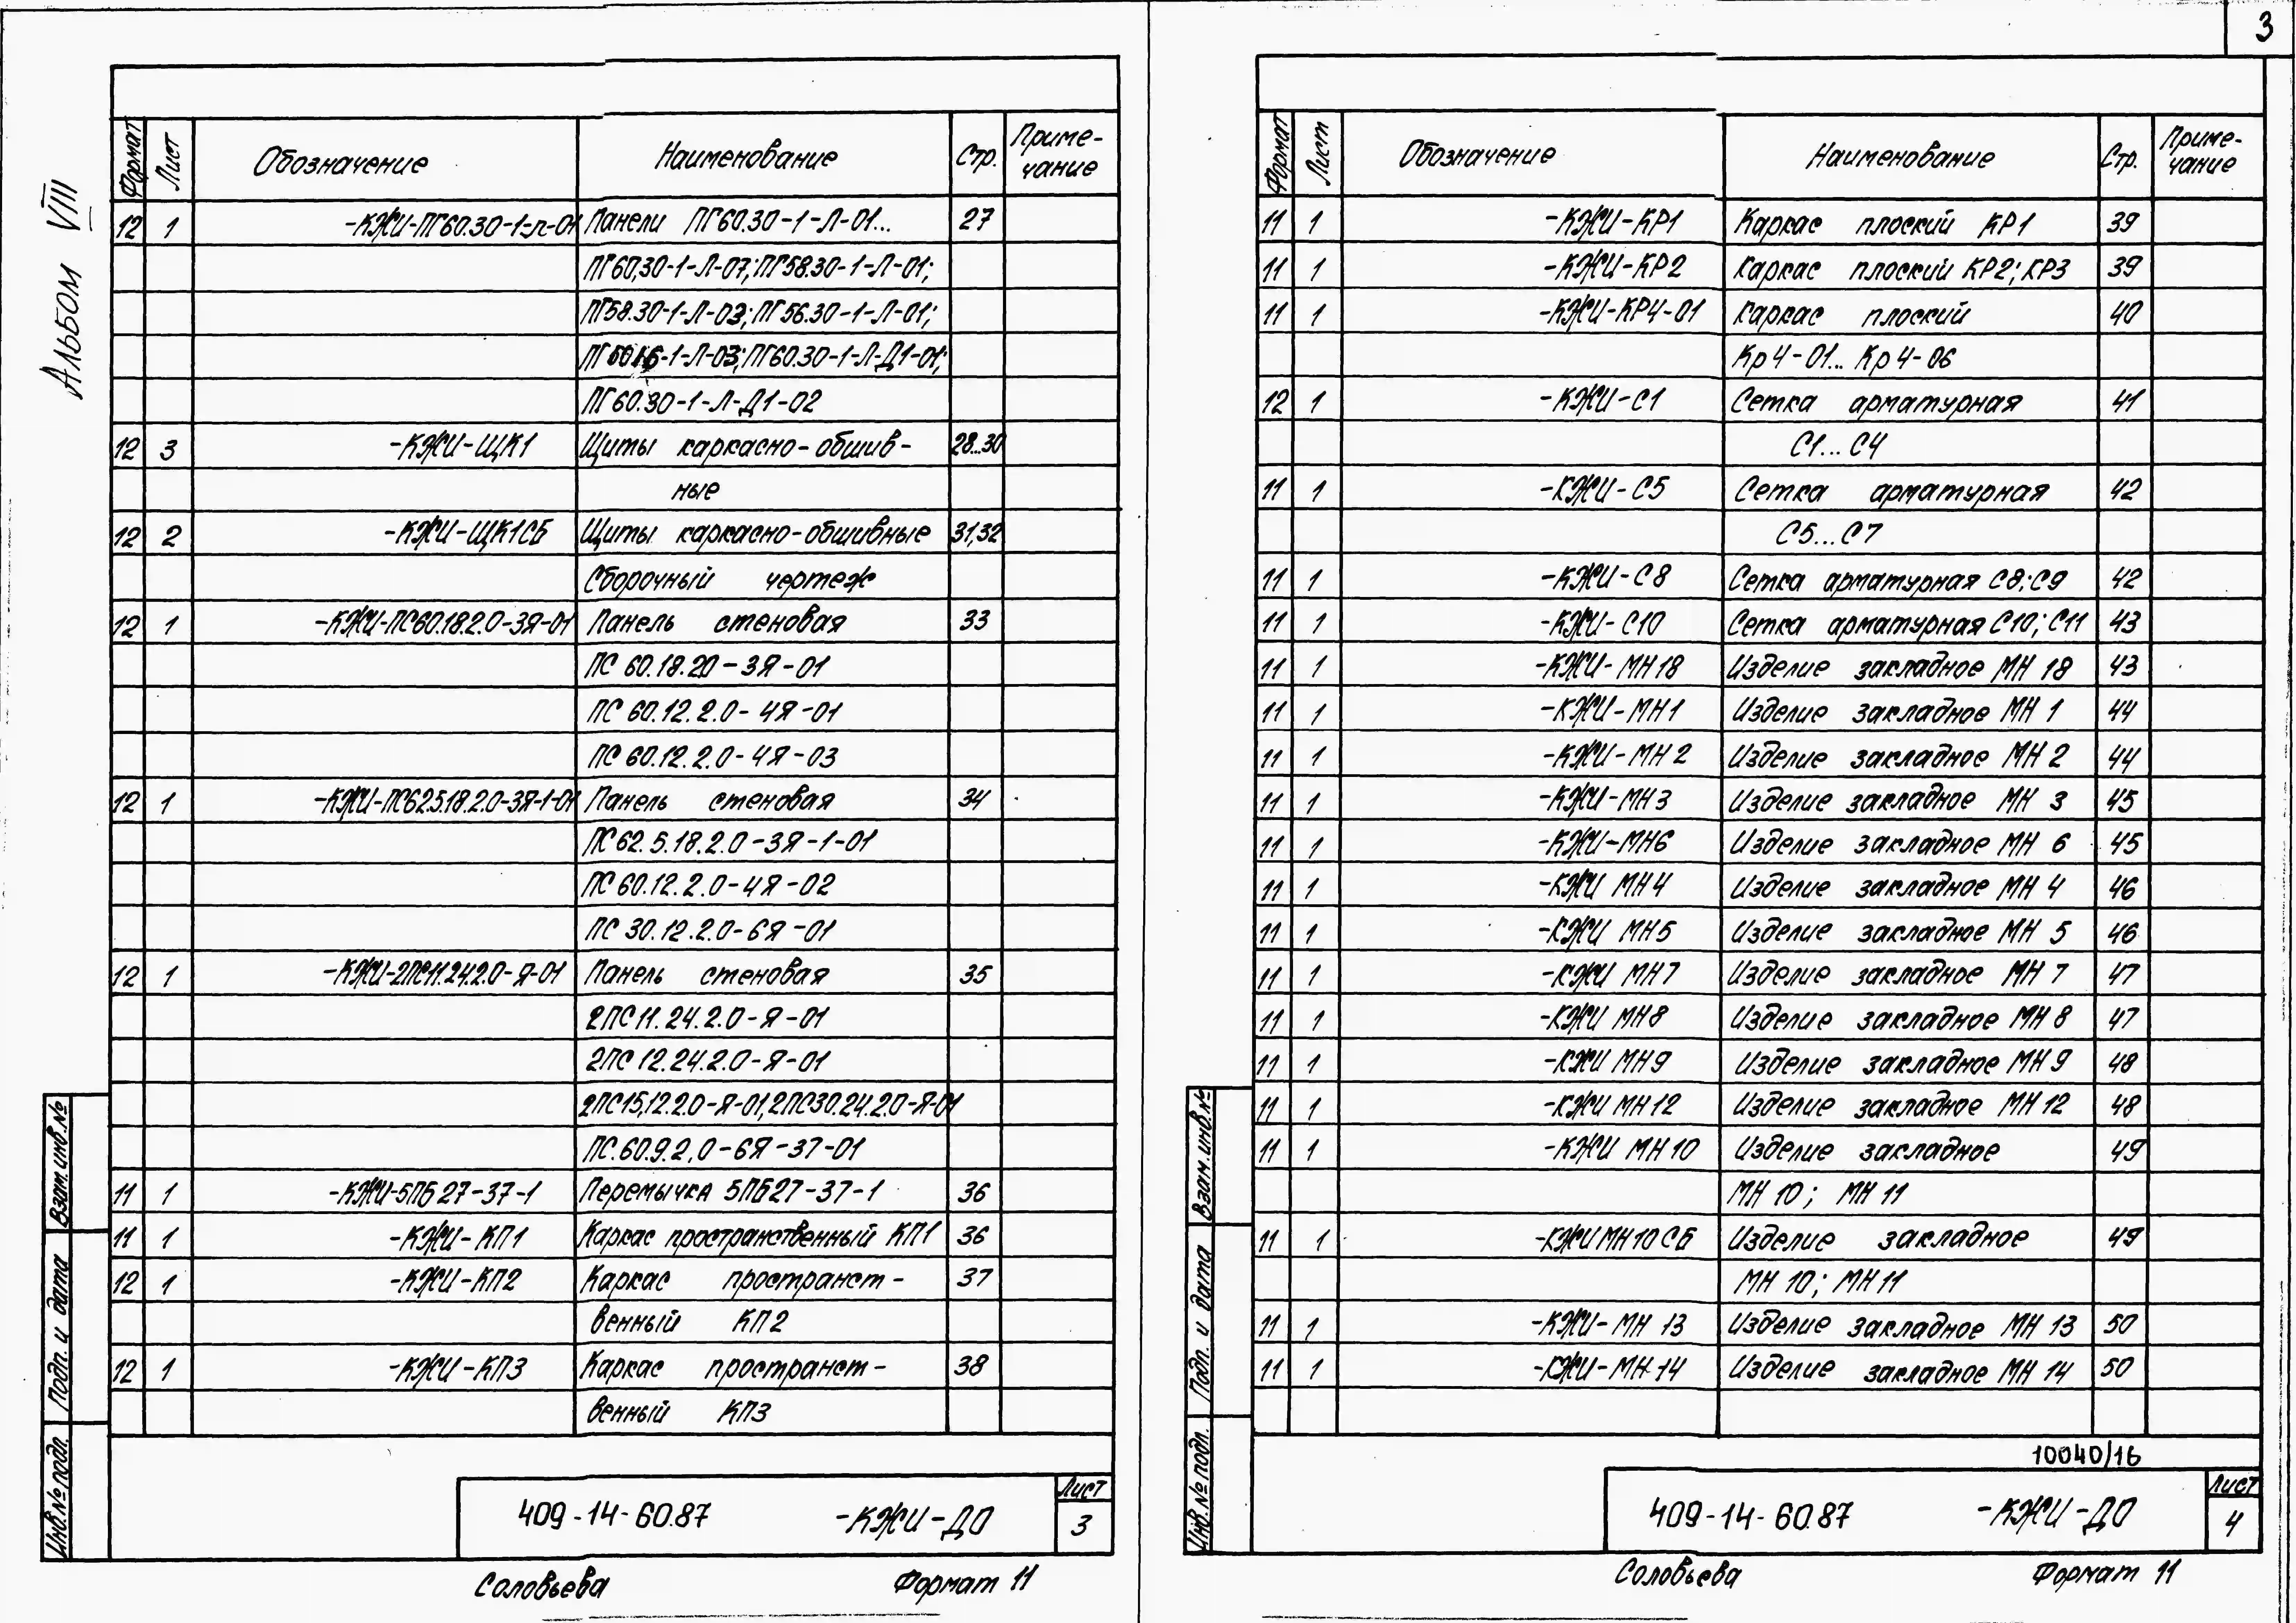 3
Альбом VIII
Формат Лист Обозначение Наименование Стр. Приме-
чание
12 1 -КЖИ-ПГ60.30-1-Л-01 Панели ПГ60.30-1-Л-01... 27
ПГ60,30-1-Л-07; ПГ58.30-1-Л-01;
ПГ58.30-1-Л-03; ПГ56.30-1-Л-01;
-1-Л-03; ПГ60.30-1-Л-Д1-01;
ПГ60.30-1-Л-Д1-02
12 3 -КЖИ-ЩК1 Щиты каркасно-обшив- 28...30
ные
12 2 -КЖИ-ЩК1СБ Щиты каркасно-обшивные 31,32
Сборочный чертеж
12 1 -КЖИ-ПС60.18.2.0-3Я-01 Панель стеновая 33
ПС 60.18.20-3Я-01
ПС 60.12.2.0-4Я-01
ПС 60.12.2.0-4Я-03
12 1 -КЖИ-ПС62.5.18.2.0-3Я-1-01 Панель стеновая 34
ПС62.5.18.2.0-3Я-1-01
ПС 60.12.2.0-4Я-02
ПС 30.12.2.0-6Я-01
12 1 -КЖИ-2ПС11.24.2.0-Я-01 Панель стеновая 35
2ПС11.24.2.0-Я-01
2ПС12.24.2.0-Я-01
2ПС15,12.2.0-Я-01, 2ПС30.24.2.0-Я-01
ПС.60.9.2,0-6Я-37-01
11 1 -КЖИ-5ПБ27-37-1 Перемычка 5ПБ27-37-1 36
11 1 -КЖИ-КП1 Каркас пространственный КП1 36
12 1 -КЖИ-КП2 Каркас пространст- 37
венный КП2
12 1 -КЖИ-КП3 Каркас пространст- 38
венный КП3
Взам.инв.№
Подп. и дата
Инв.№ подл.
409-14-60.87 -КЖИ-ДО Лист
3
Соловьева Формат 11
Формат Лист Обозначение Наименование Стр. Приме-
чание
11 1 -КЖИ-КР1 Каркас плоский КР1 39
11 1 -КЖИ-КР2 Каркас плоский КР2; КР3 39
11 1 -КЖИ-КР4-01 Каркас плоский 40
Кр4-01... Кр4-06
12 1 -КЖИ-С1 Сетка арматурная 41
С1...С4
11 1 -КЖИ-С5 Сетка арматурная 42
С5...С7
11 1 -КЖИ-С8 Сетка арматурная С8; С9 42
11 1 -КЖИ-С10 Сетка арматурная С10; С11 43
11 1 -КЖИ-МН18 Изделие закладное МН 18 43
11 1 -КЖИ-МН1 Изделие закладное МН 1 44
11 1 -КЖИ-МН2 Изделие закладное МН 2 44
11 1 -КЖИ-МН3 Изделие закладное МН 3 45
11 1 -КЖИ-МН6 Изделие закладное МН 6 45
11 1 -КЖИ МН4 Изделие закладное МН 4 46
11 1 -КЖИ МН5 Изделие закладное МН 5 46
11 1 -КЖИ МН7 Изделие закладное МН 7 47
11 1 -КЖИ МН8 Изделие закладное МН 8 47
11 1 -КЖИ МН9 Изделие закладное МН 9 48
11 1 -КЖИ МН12 Изделие закладное МН 12 48
11 1 -КЖИ МН10 Изделие закладное 49
МН 10; МН 11
11 1 -КЖИМН10СБ Изделие закладное 49
МН 10; МН11
11 1 -КЖИ-МН 13 Изделие закладное МН 13 50
11 1 -КЖИ-МН-14 Изделие закладное МН 14 50
Взам.инв.№
Подп. и дата
Инв.№ подл.
10040/16
409-14-60.87 -КЖИ-ДО Лист
4
Соловьева Формат 11